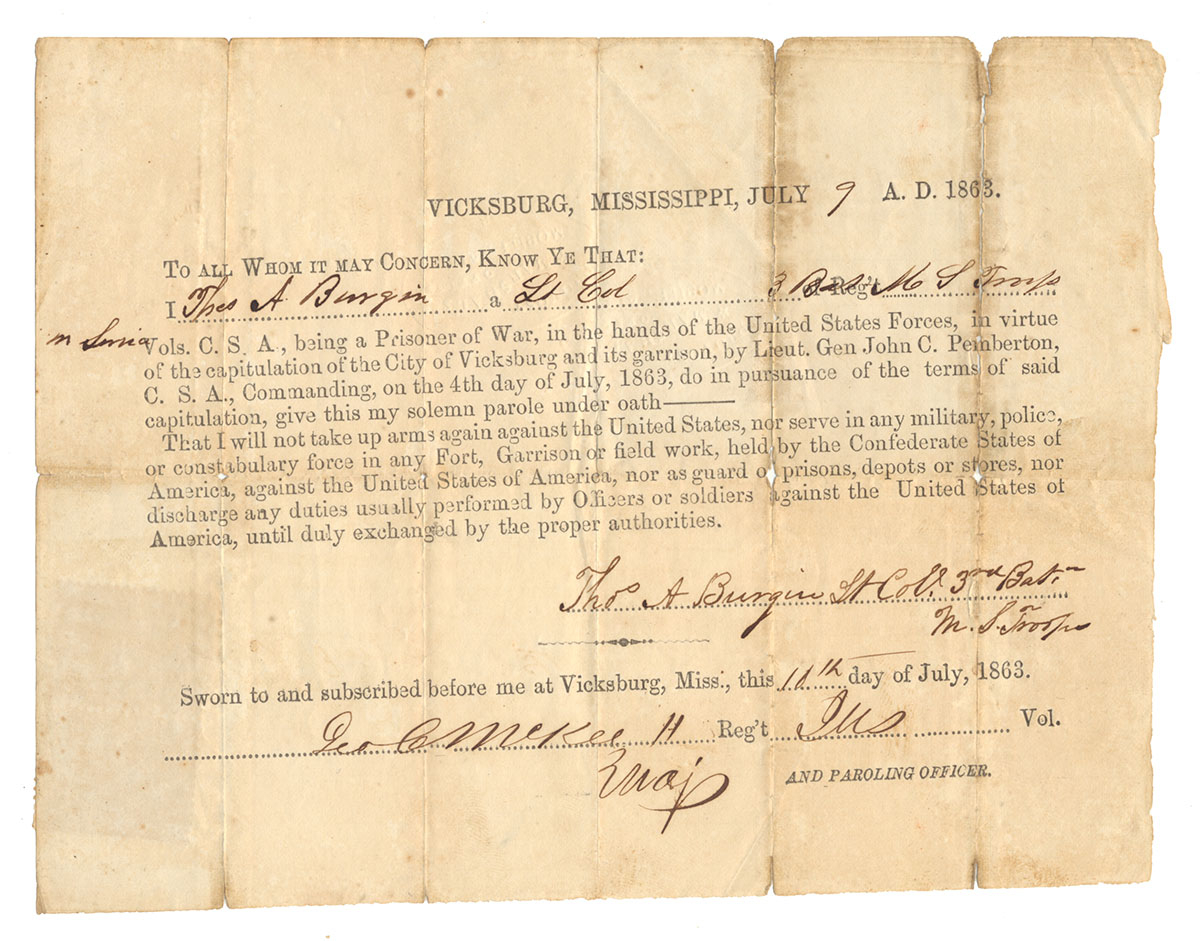 VICKSBURG, MISSISSIPPI, JULY 9 A. D. 1863.
TO ALL WHOM IT MAY CONCERN, KNOW YE THAT:
I Thos A Burgin a Lt Col 3 Bat Reg't M S Troops
Vols. C. S. A., being a Prisoner of War, in the hands of the United States Forces, in virtue
of the capitulation of the City of Vicksburg and its garrison, by Lieut. Gen John C. Pemberton,
C. S. A., Commanding, on the 4th day of July, 1863, do in pursuance of the terms of said
capitulation, give this my solemn parole under oath———
That I will not take up arms again against the United States, nor serve in any military, police,
or constabulary force in any Fort, Garrison or field work, held by the Confederate States of
America, against the United States of America, nor as guard of prisons, depots or stores, nor
discharge any duties usually performed by Officers or soldiers against the United States of
America, until duly exchanged by the proper authorities.
Thos A Burgin Lt Col. 3rd Batn
M. S. Troops
Sworn to and subscribed before me at Vicksburg, Miss., this 10th day of July, 1863.
Geo C McKee 11 Reg't Ills Vol.
AND PAROLING OFFICER.